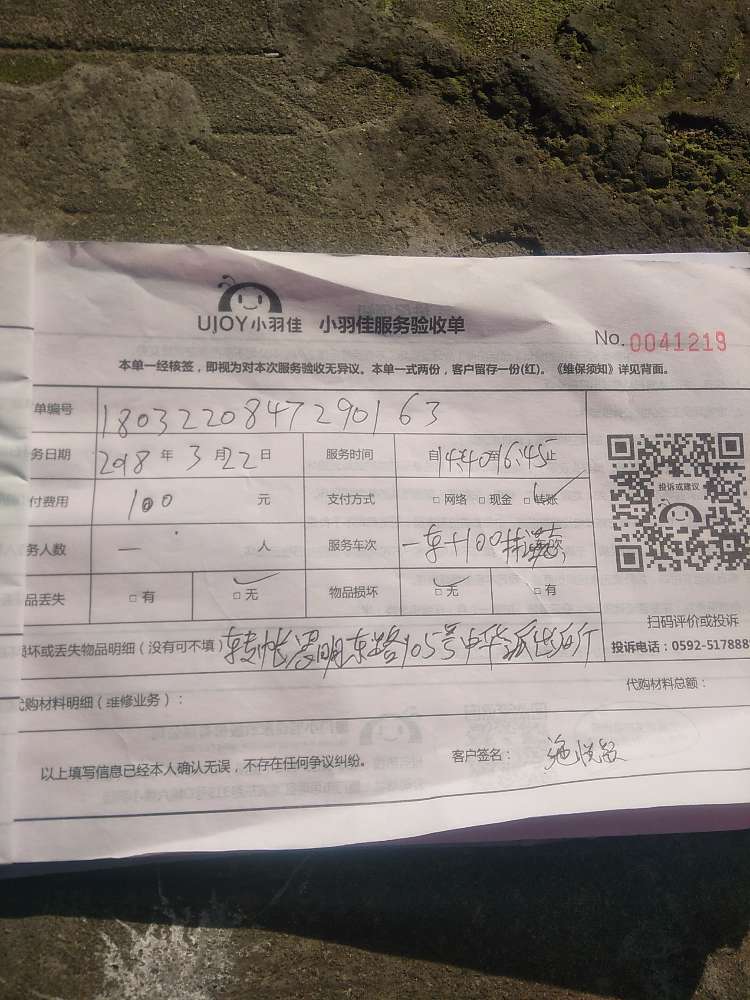 UJOY小羽佳 小羽佳服务验收单
No. 0041219
本单一经核签，即视为对本次服务验收无异议。本单一式两份，客户留存一份(红)。《维保须知》详见背面。
单编号 1803220847290163
务日期 2018 年 3 月 22 日 服务时间 自14:40至16:45止
付费用 100 元 支付方式 □网络 □现金 □转账
投诉或建议
务人数 一 人 服务车次 一车+100
品丢失 □有 □无 物品损坏 □无 □有
扫码评价或投诉
损坏或丢失物品明细（没有可不填） 转帐 思明东路105号中华派出所
投诉电话：0592-517888
代购材料明细（维修业务）： 代购材料总额：
以上填写信息已经本人确认无误，不存在任何争议纠纷。 客户签名： 施悦